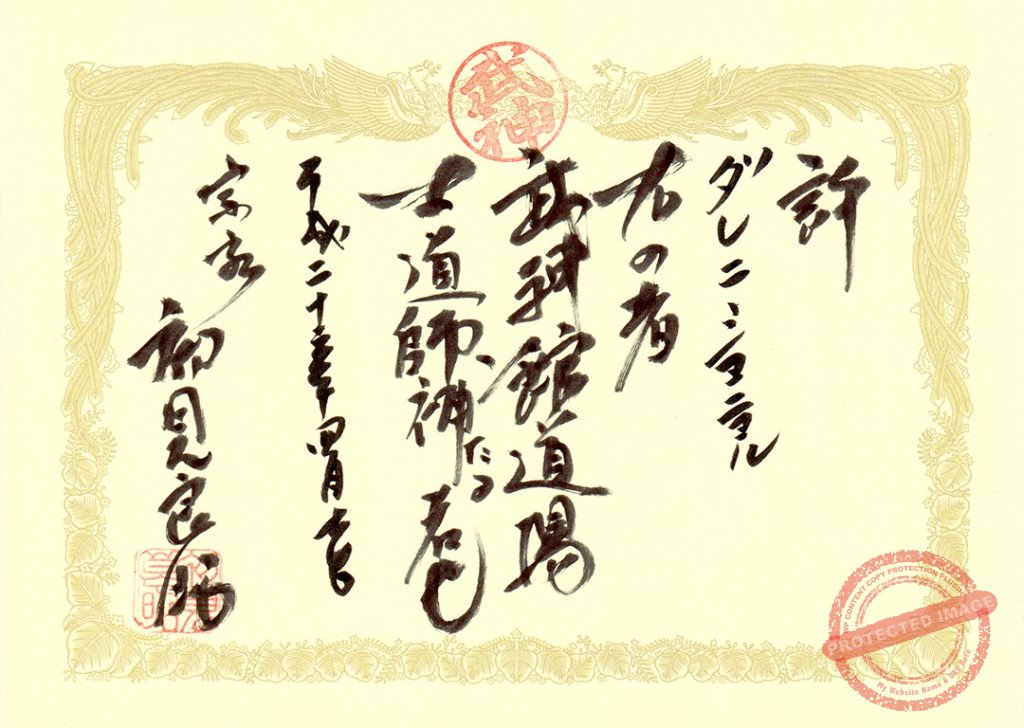 武神
許
ダレニ
右の者
武神館道場
士道師補たる者也
平成二十 年四月吉日
宗家 初見良昭
WP CONTENT COPY PROTECTION PLUGIN
PROTECTED IMAGE
My Website Name & Url Here